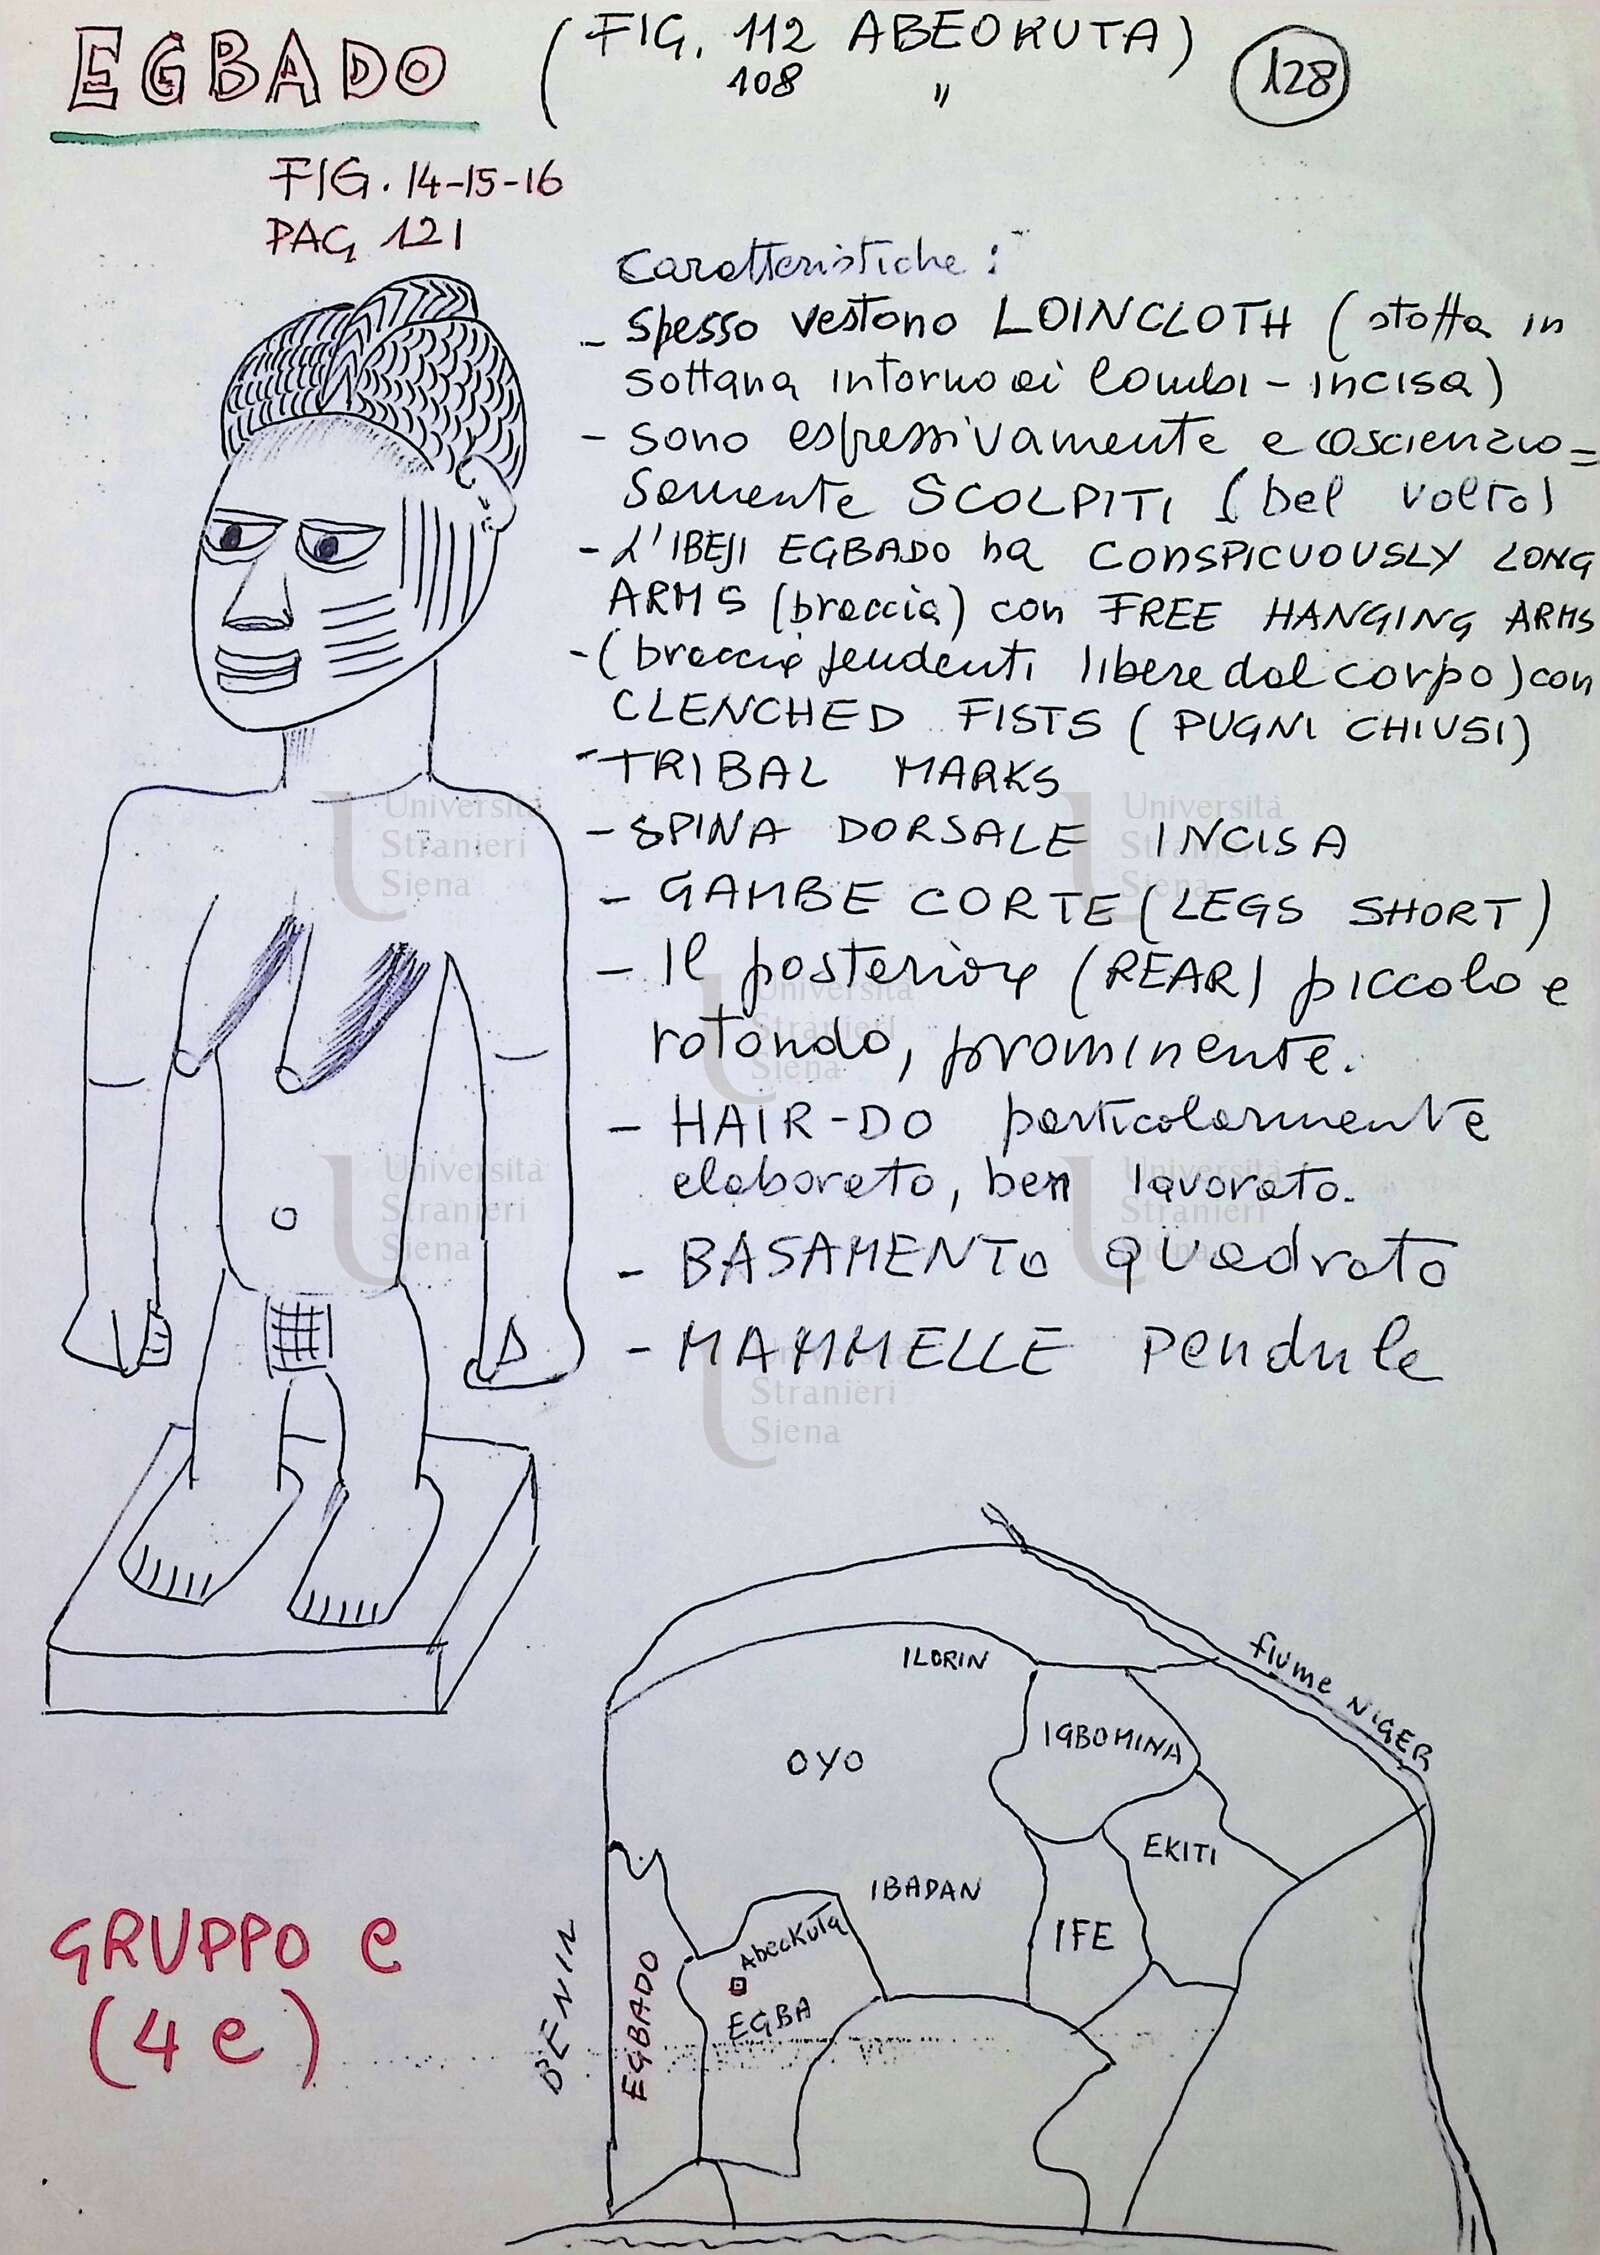 EGBADO
(FIG. 112 ABEOKUTA)
108 "
128
FIG. 14-15-16
PAG 121
Caratteristiche:
- Spesso vestono LOINCLOTH (stoffa in
sottana intorno ai lombi - incisa)
- sono espressivamente e coscienzio=
samente SCOLPITI (bel volto)
- L'IBEJI EGBADO ha CONSPICUOUSLY LONG
ARMS (braccia) con FREE HANGING ARMS
- (braccia pendenti libere dal corpo) con
CLENCHED FISTS (PUGNI CHIUSI)
- TRIBAL MARKS
- SPINA DORSALE INCISA
- GAMBE CORTE (LEGS SHORT)
- Il posteriore (REAR) piccolo e
rotondo, prominente.
- HAIR-DO particolarmente
elaborato, ben lavorato.
- BASAMENTO quadrato
- MAMMELLE pendule
Università
Stranieri
Siena
Università
Stranieri
Siena
Università
Stranieri
Siena
Università
Stranieri
Siena
Università
Stranieri
Siena
Stranieri
Siena
fiume NIGER
ILORIN
IGBOMINA
OYO
EKITI
IBADAN
IFE
Abeokuta
EGBA
EGBADO
BENIN
GRUPPO e
(4e)